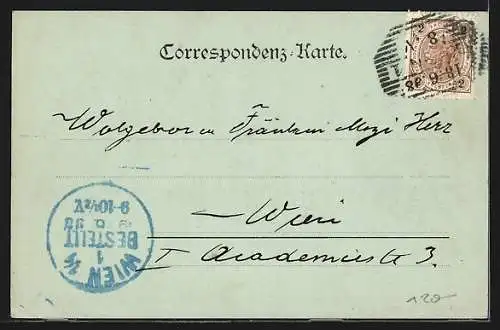 Correspondenz-Karte.
Wolgeboren Fräulein Mizi Herz
Wien
I Academiestr 3.
WIEN 1/1
1
BESTELLT
9.6.98
9-10½V
120